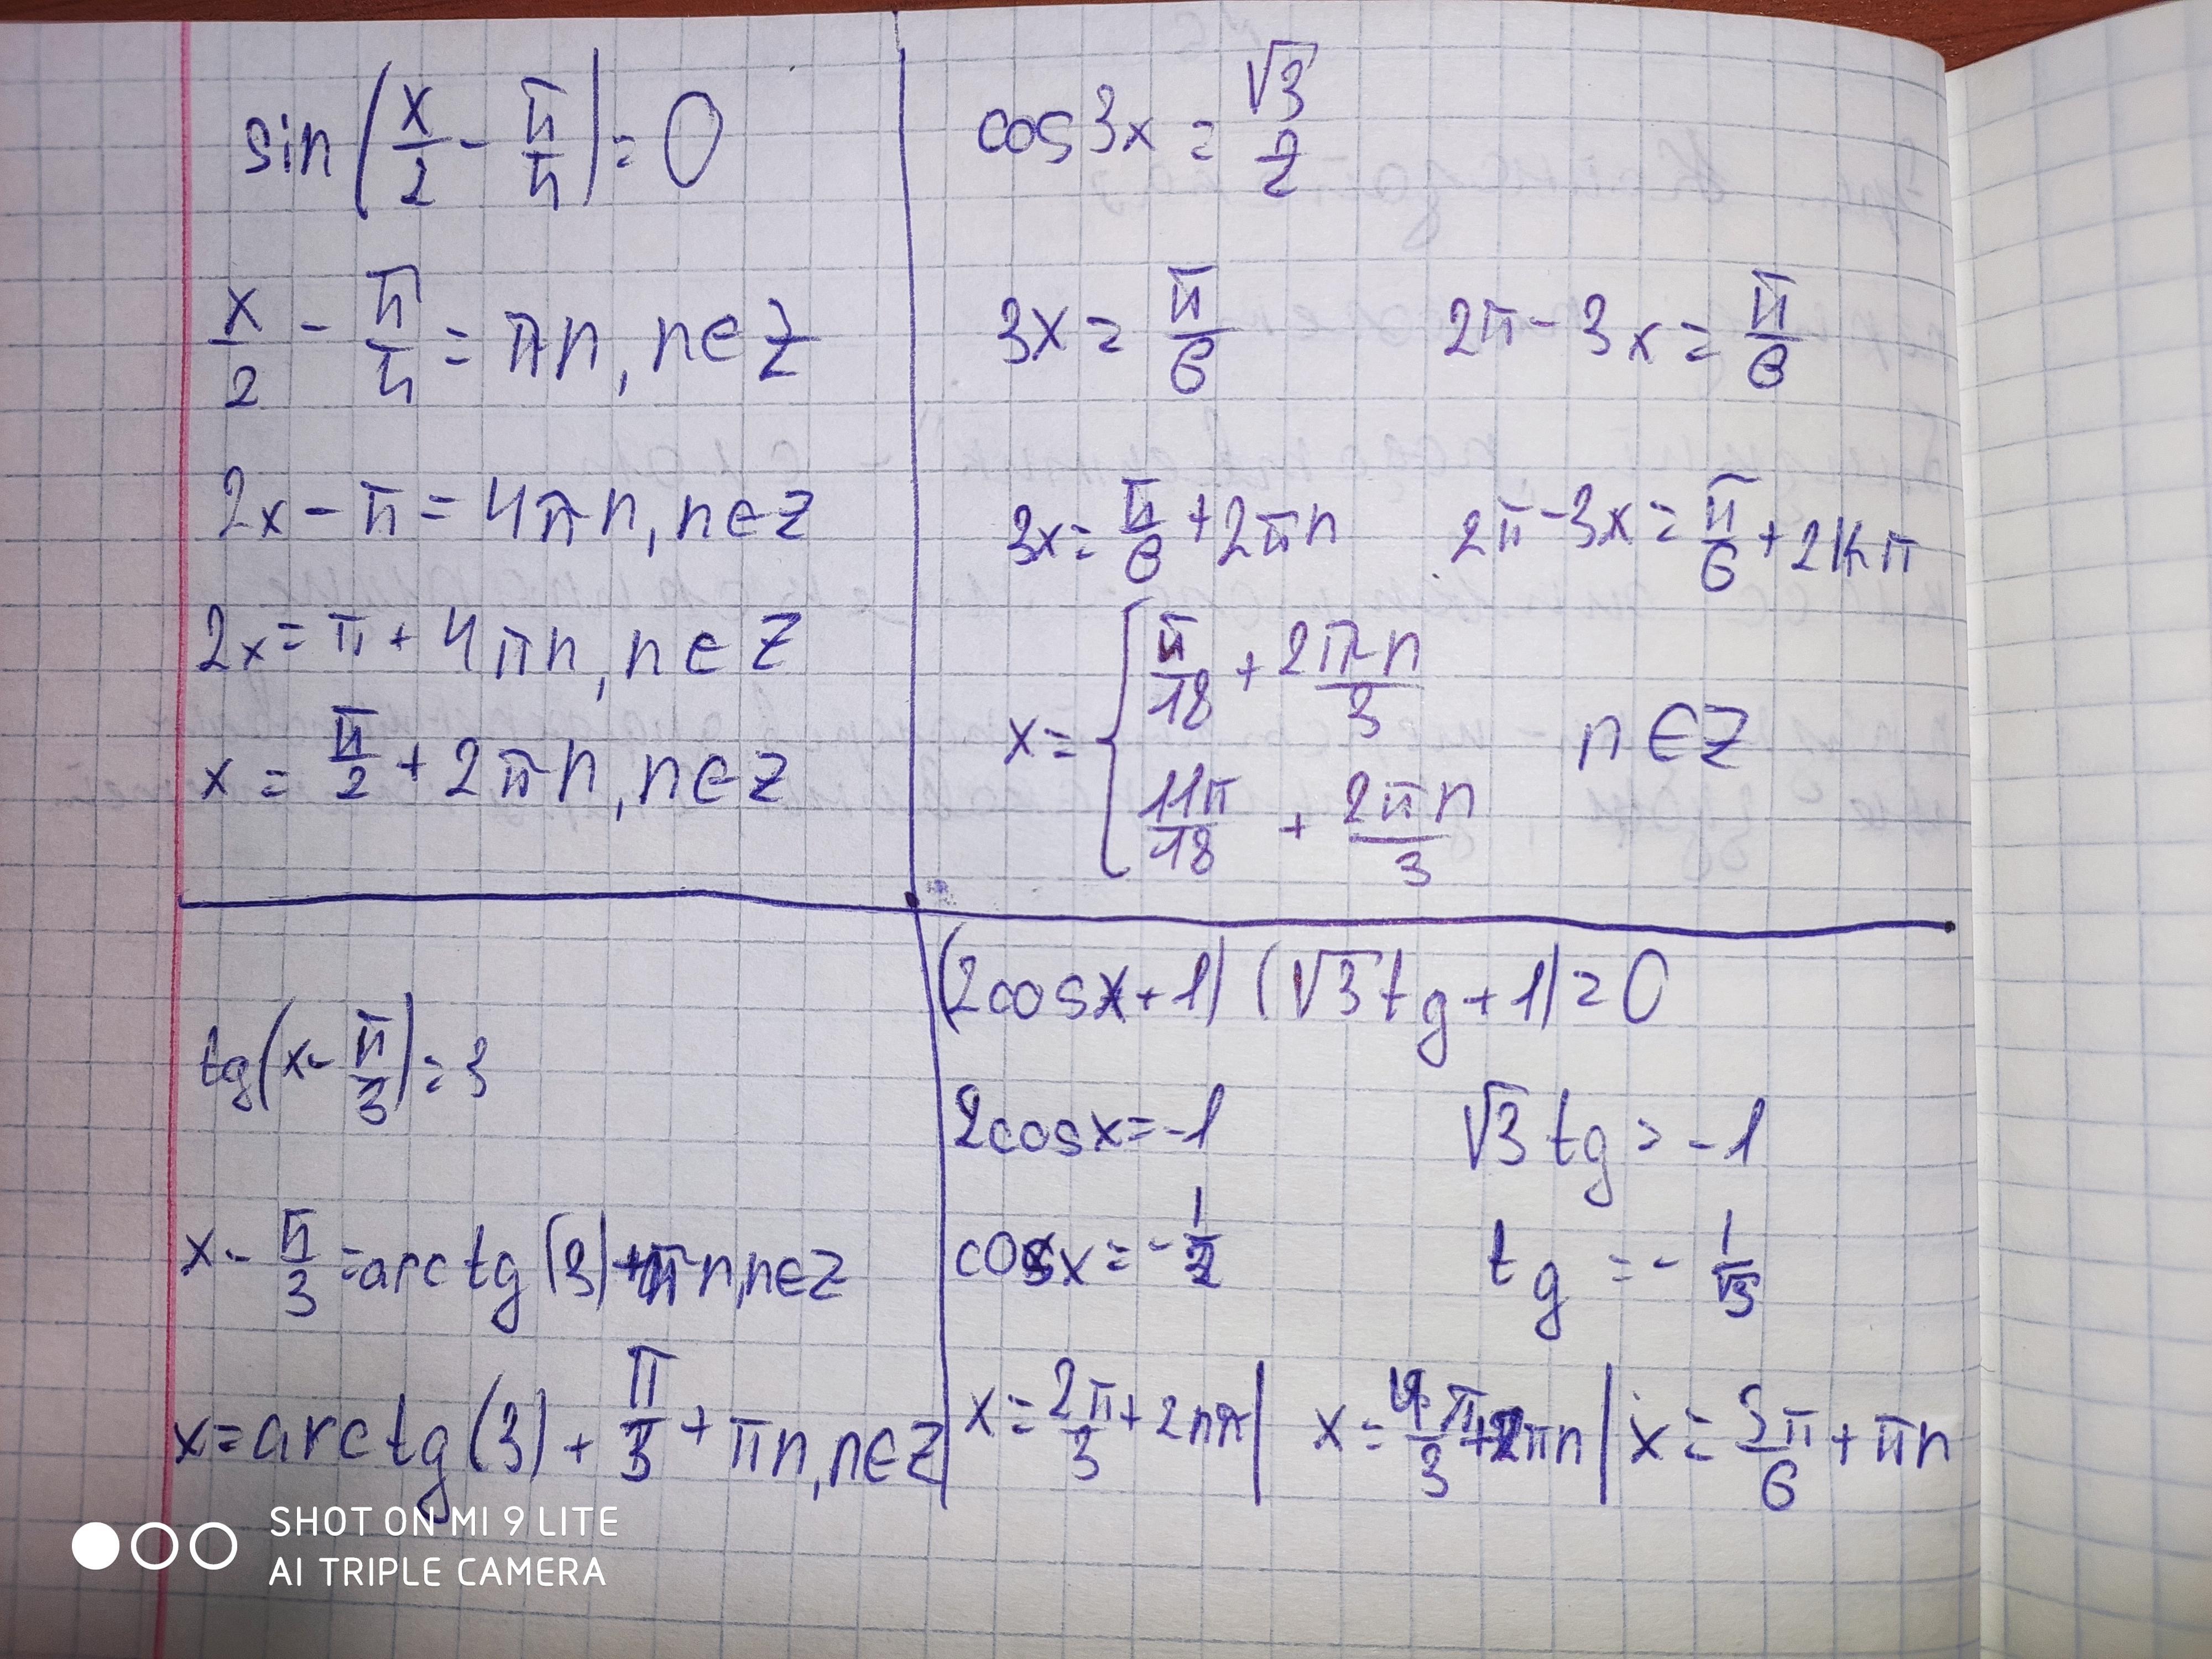 sin(x/2 - π/4) = 0
x/2 - π/4 = πn, n∈Z
2x - π = 4πn, n∈Z
2x = π + 4πn, n∈Z
x = π/2 + 2πn, n∈Z
cos3x = √3/2
3x = π/6 2π - 3x = π/6
3x = π/6 + 2πn 2π - 3x = π/6 + 2kπ
x = { π/18 + 2πn/3
11π/18 + 2πn/3 n∈Z
tg(x - π/3) = 3
x - π/3 = arctg(3) + πn, n∈Z
x = arctg(3) + π/3 + πn, n∈Z
(2cosx + 1) (√3tg + 1) = 0
2cosx = -1 √3tg = -1
cosx = -1/2 tg = -1/√3
x = 2π/3 + 2nπ | x = 4π/3 + 2πn | x = 5π/6 + πn
SHOT ON MI 9 LITE
AI TRIPLE CAMERA